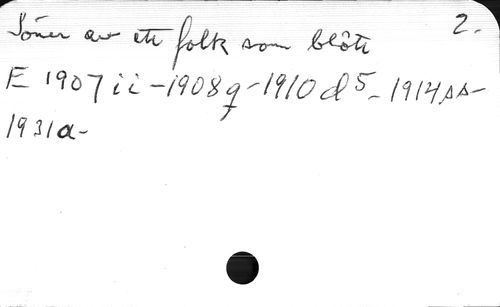 Söner av ett folk som blött 2.
E 1907 ii - 1908 g - 1910 d 5 - 1914 ss -
1931 a -